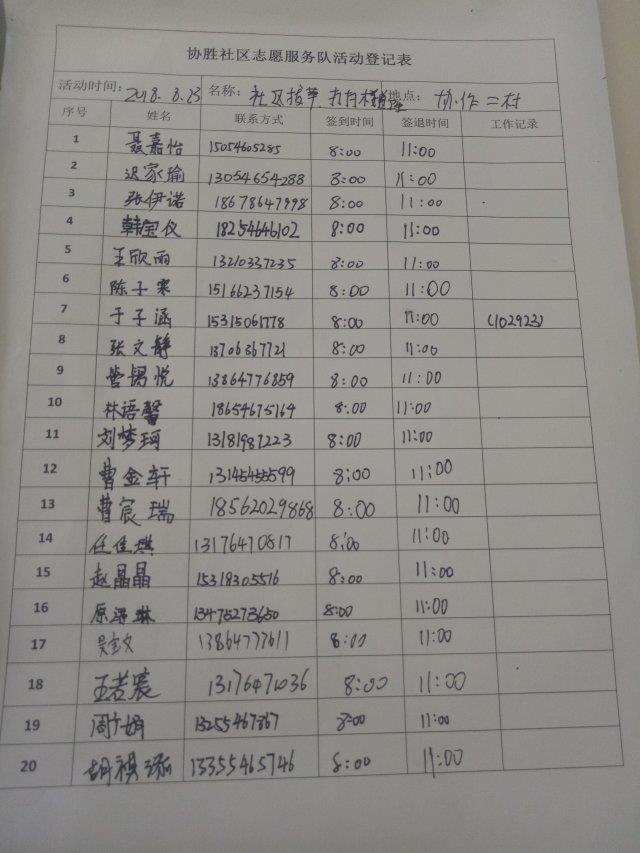 协胜社区志愿服务队活动登记表
活动时间: 2018.8.23 名称: 社区拔草 地点: 协作二村
序号 姓名 联系方式 签到时间 签退时间 工作记录
1 聂嘉怡 15054605285 8:00 11:00
2 迟家瑜 13054654288 8:00 11:00
3 张伊诺 18678647998 8:00 11:00
4 韩宝仪 18254646102 8:00 11:00
5 王欣雨 13210337235 8:00 11:00
6 陈子寒 15166237154 8:00 11:00
7 于子涵 15315061778 8:00 11:00 (102923)
8 张文静 13706367721 8:00 11:00
9 管锡悦 13864776859 8:00 11:00
10 林语馨 18654675164 8:00 11:00
11 刘梦珂 13181987223 8:00 11:00
12 曹金轩 13145455599 8:00 11:00
13 曹宸瑞 18562029868 8:00 11:00
14 任佳琪 13176470817 8:00 11:00
15 赵晶晶 15318305516 8:00 11:00
16 13475273650 8:00 11:00
17 13864777611 8:00 11:00
18 王若宸 13176471036 8:00 11:00
19 周娟 13255467867 8:00 11:00
20 胡祺 13355465746 8:00 11:00